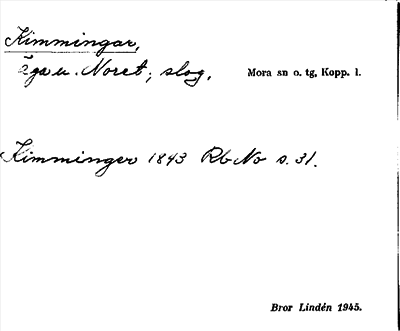 Kimmingar,
äga u. Noret; slog. Mora sn o. tg, Kopp. l.
Kimminger 1843 Rb No s. 31.
Bror Lindén 1945.